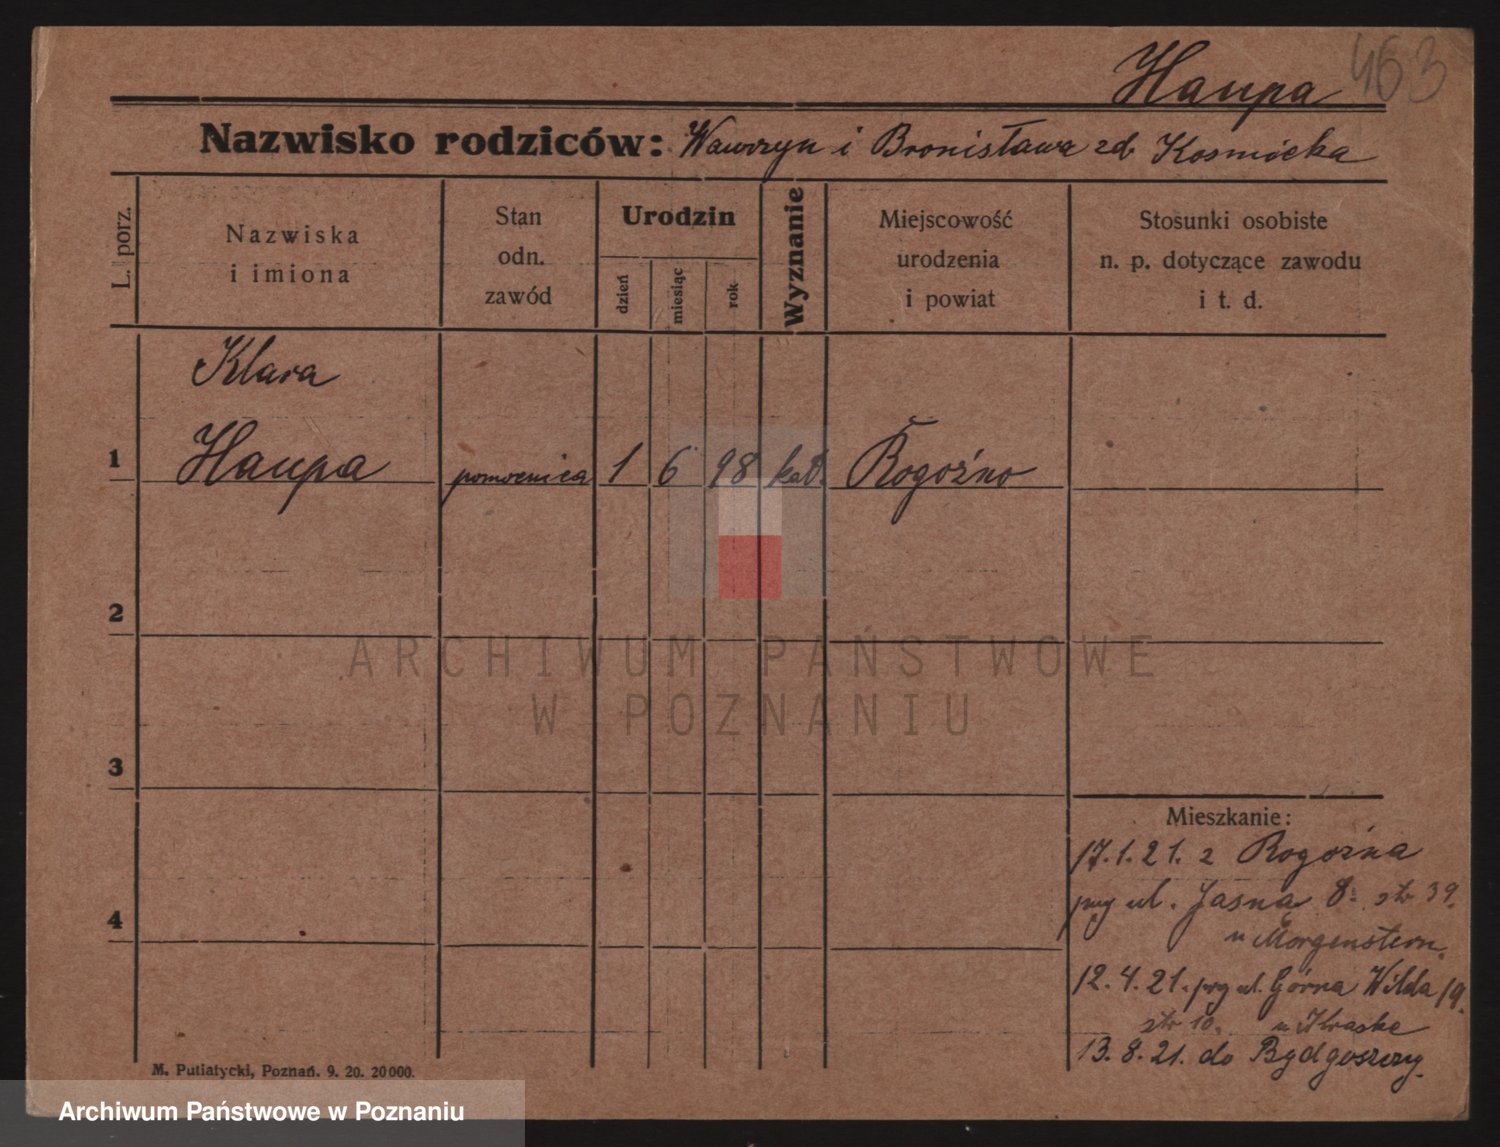 Haupa 463
Nazwisko rodziców: Wawrzyn i Bronisława zd Kosmicka
L. porz.
Nazwiska
i imiona
Stan
odn.
zawód
Urodzin
dzień
miesiąc
rok
Wyznanie
Miejscowość
urodzenia
i powiat
Stosunki osobiste
n. p. dotyczące zawodu
i t. d.
Klara
1 Haupa pomocnica 1 6 98 kat. Rogoźno
2
3
4
Mieszkanie:
17.1.21. z Rogoźna
ul. Jasna 8. str 39.
u Morgenstern.
12.4.21. ul. Górna Wilda 19.
str 10. u
13.8.21. do Bydgoszczy.
M. Putiatycki, Poznań. 9. 20. 20000.
ARCHIWUM PAŃSTWOWE
W POZNANIU
Archiwum Państwowe w Poznaniu